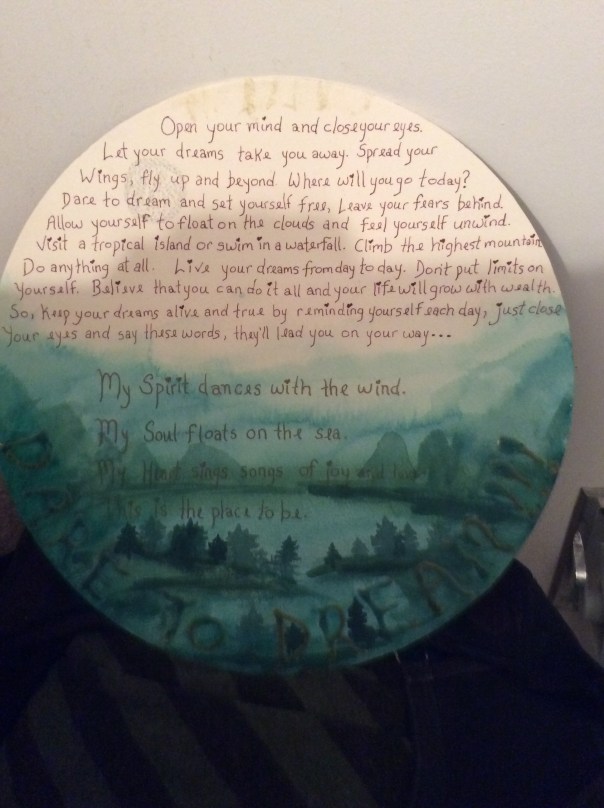 Open your mind and close your eyes.
Let your dreams take you away. Spread your
Wings, fly up and beyond. Where will you go today?
Dare to dream and set yourself free, Leave your fears behind.
Allow yourself to float on the clouds and feel yourself unwind.
Visit a tropical island or swim in a waterfall. Climb the highest mountain
Do anything at all. Live your dreams from day to day. Don't put limits on
yourself. Believe that you can do it all and your life will grow with wealth.
So, keep your dreams alive and true by reminding yourself each day, just close
your eyes and say these words, they'll lead you on your way...
My Spirit dances with the wind.
My Soul floats on the sea.
My Heart sings songs of joy and
This is the place to be.
DARE TO DREAM!!!